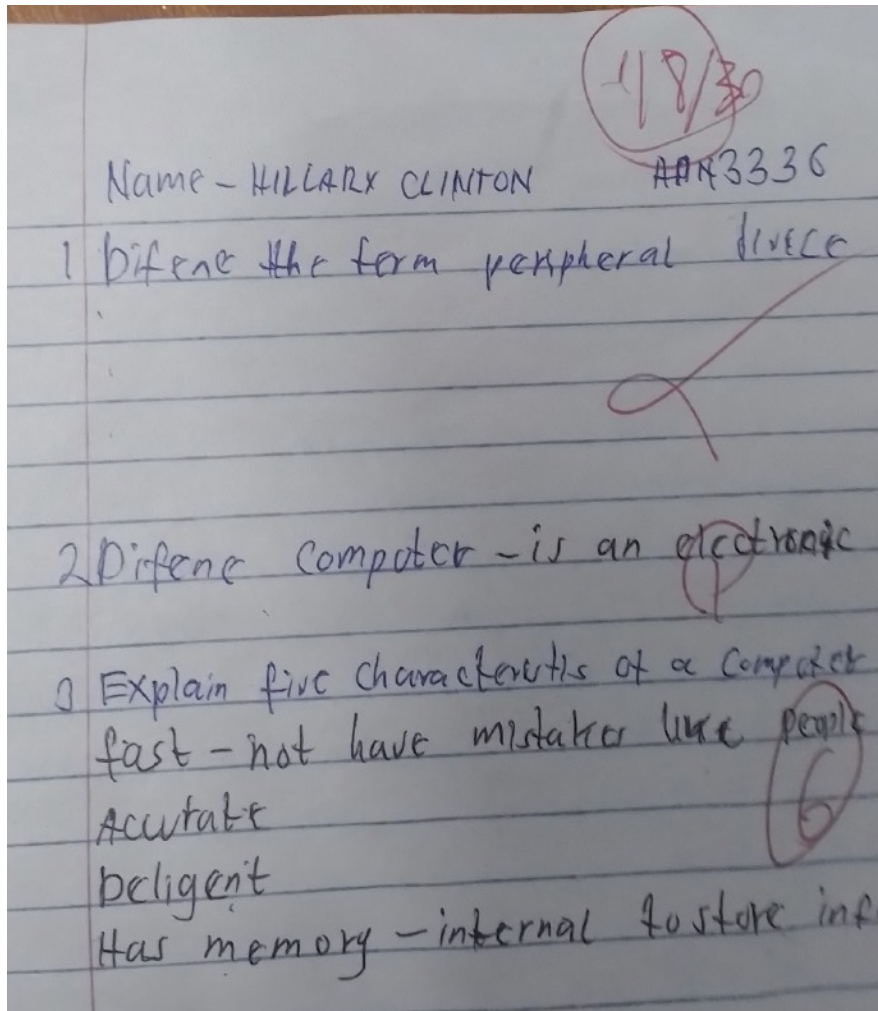 18/30
Name - HILLARY CLINTON 3336
1 Difene the term peripheral divece
2 Difene Computer - is an electronic
1
3 Explain five Characterutis of a Computer
fast - not have mistakes like people
6
Accurate
Deligent
Has memory - internal to store inf